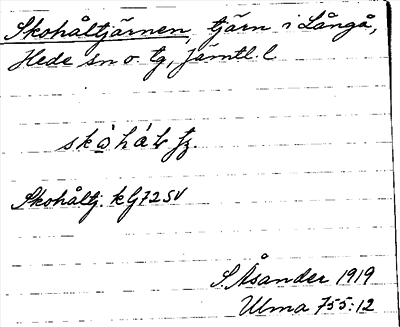 Skohåltjärnen, tjärn i Långå,
Hede sn o. tg, Jämtl. l
Skohåltj. kG72SV
S. Åsander 1919
Ulma 755:12